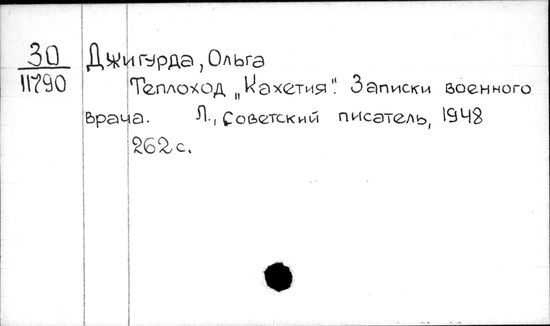 30 Джигурда, Ольга
11790 Теплоход „Кахетия". Записки военного
врача. Л., Советский писатель, 1948
262 с.